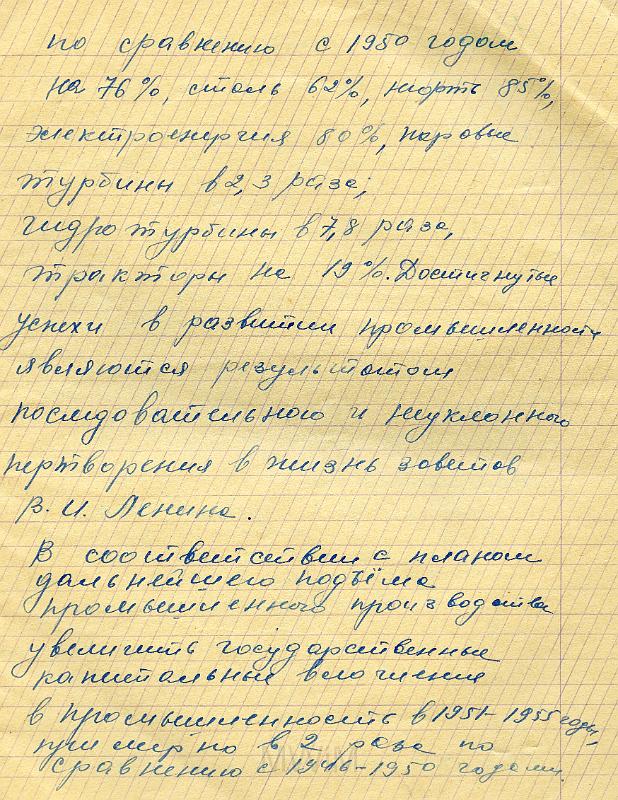 по сравнению с 1950 годом
на 76%, сталь 62%, нефть 85%,
электроенергия 80%, паровые
турбины в 2,3 раза;
гидротурбины в 7,8 раза,
тракторы на 19%. Достигнутые
успехи в развитии промышленности
являются результатом
последовательного и неуклонного
претворения в жизнь заветов
В. И. Ленина.
В соответствии с планом
дальнейшего подъёма
промышленного производства
увеличить государственные
капитальные вложения
в промышленность в 1951-1955 годы,
примерно в 2 раза по
сравнению с 1946-1950 годами.